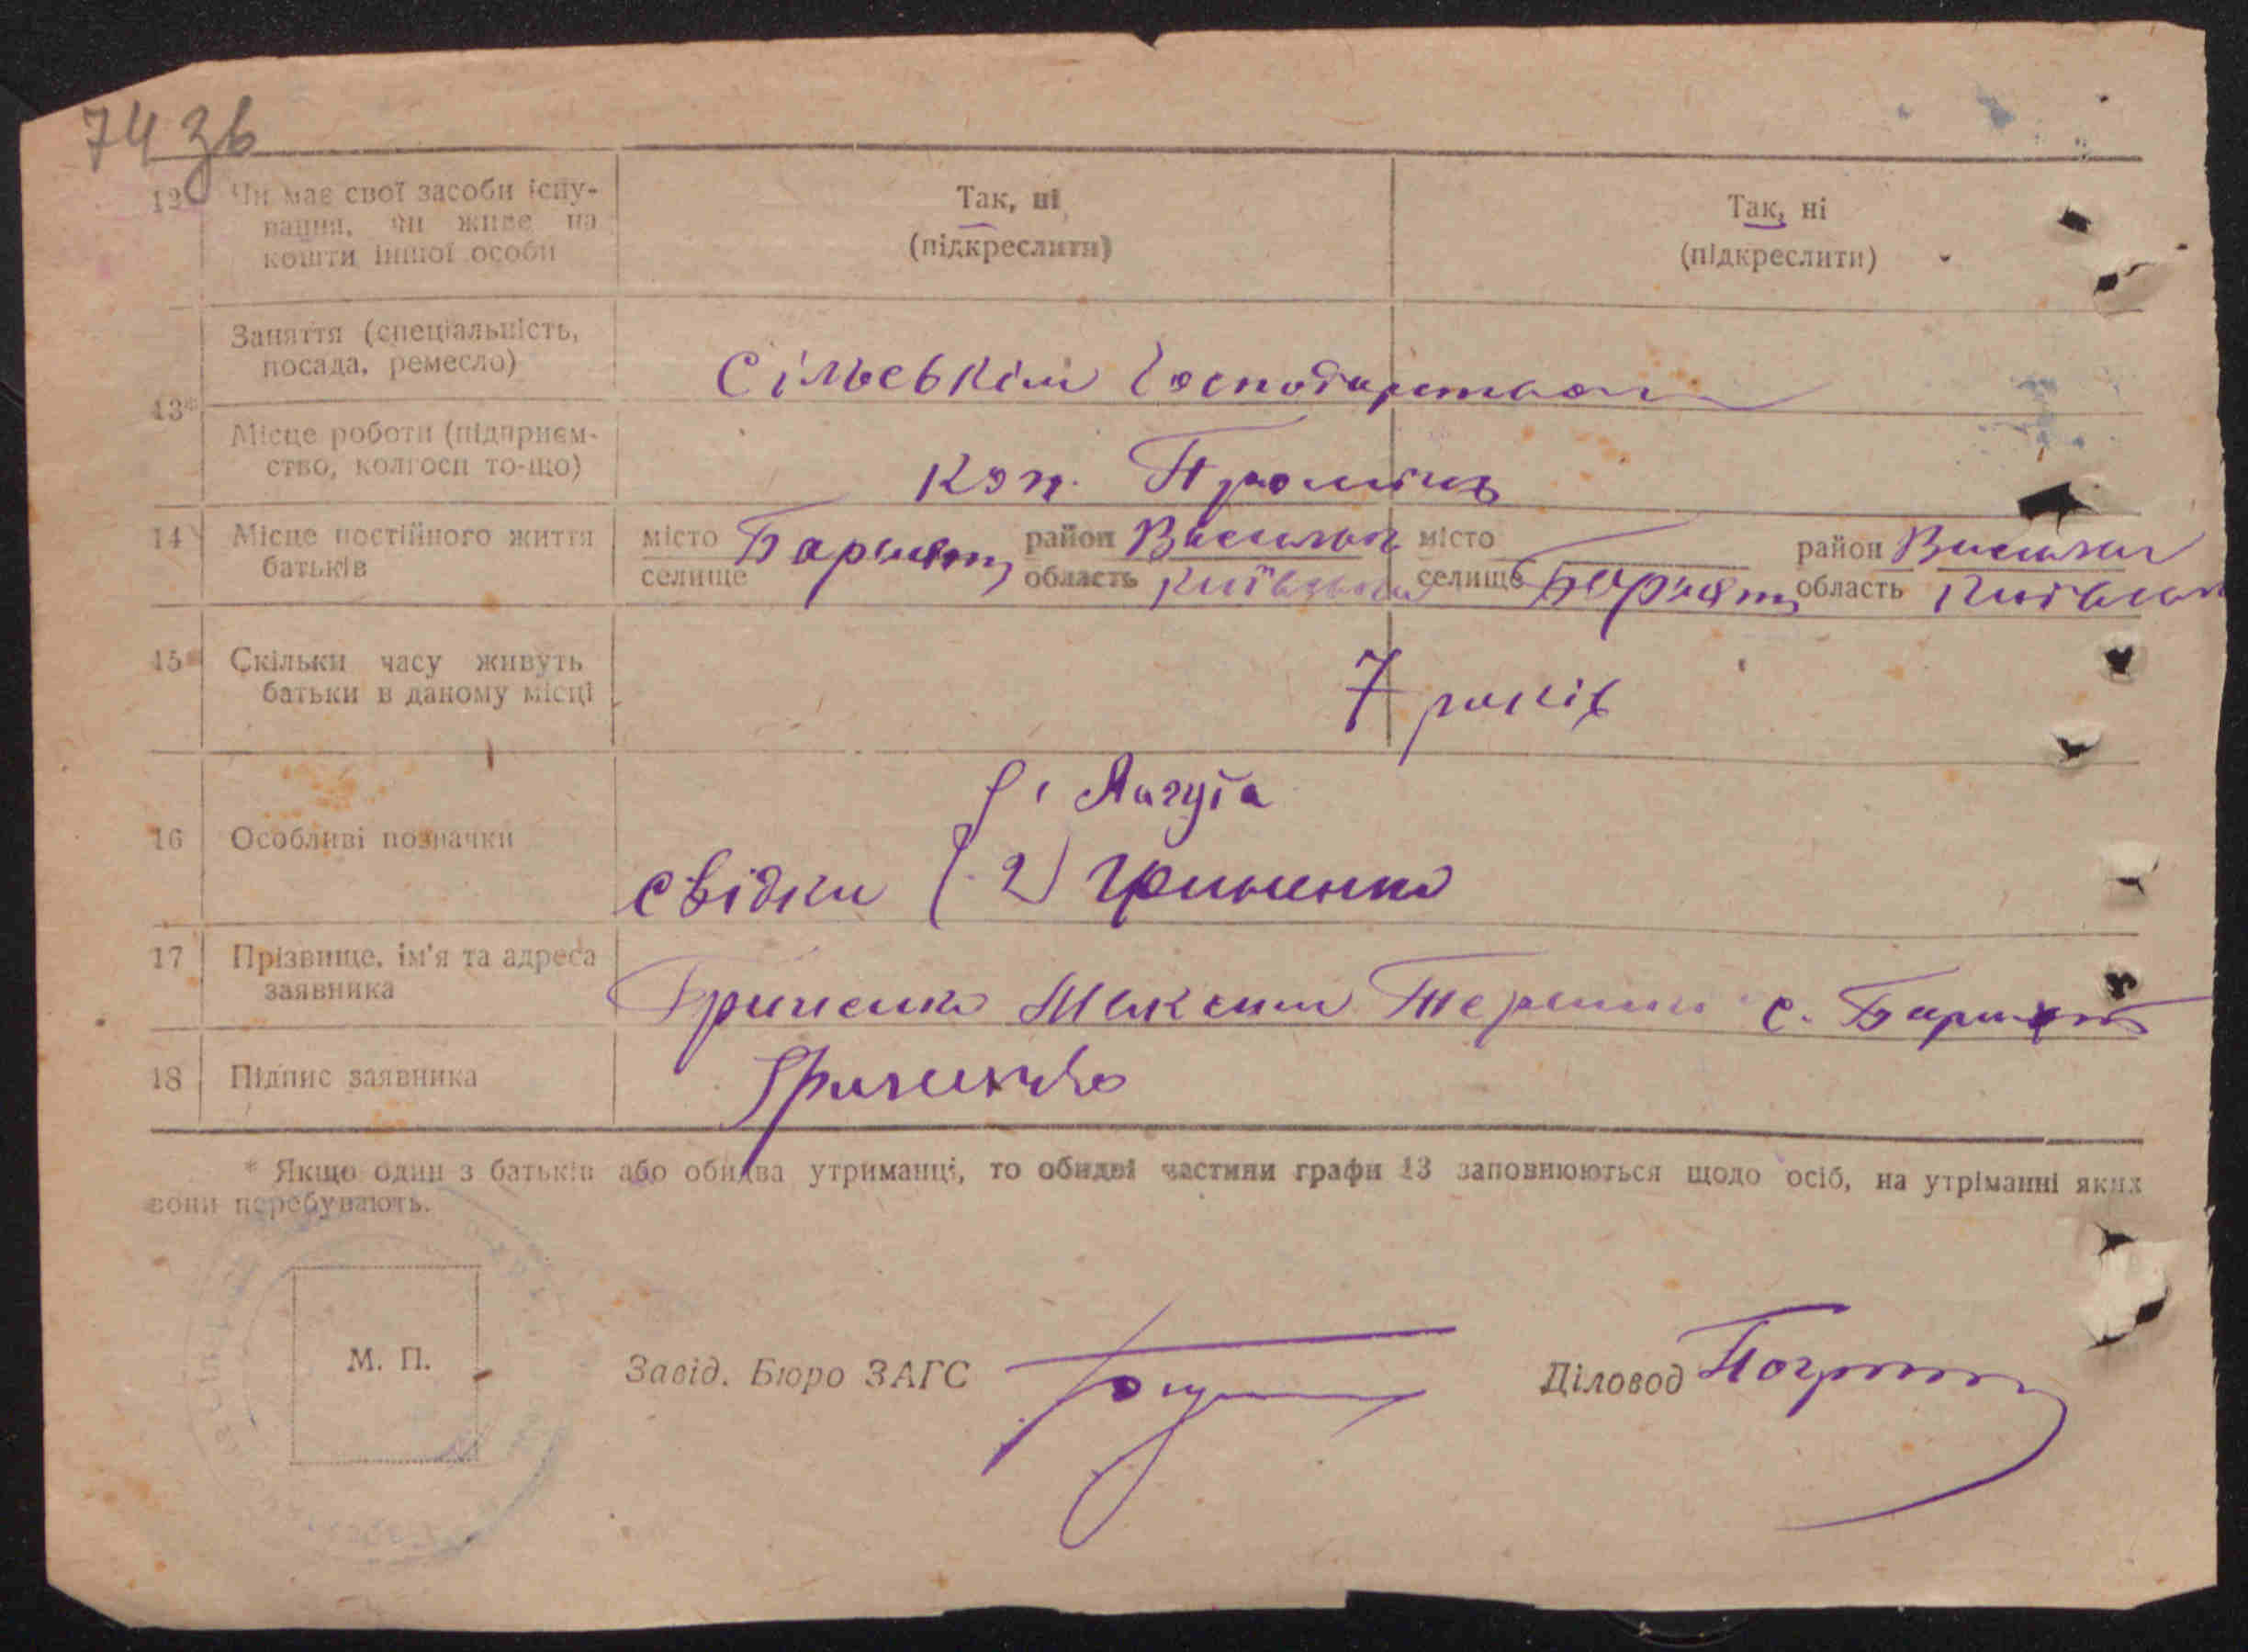 74 зв
12 Чи має свої засоби існу-
вання, чи живе на
кошти іншої особи
Так, ні
(підкреслити)
Так, ні
(підкреслити)
13*
Заняття (спеціальність,
посада, ремесло)
Сільськім Господарством
Місце роботи (підприєм-
ство, колгосп то-що)
Промінь
14 Місце постійного життя
батьків
місто
селище
Бархоти
район
область
Київська
місто
селище
район
область
15 Скільки часу живуть
батьки в даному місці
7 років
16 Особливі позначки
свідки
2)
17 Прізвище, ім'я та адреса
заявника
Гриченко Максим с.
18 Підпис заявника
Гриченко
* Якщо один з батьків або обидва утриманці, то обидві частини графи 13 заповнюються щодо осіб, на утріманні яких
вони перебувають.
М. П.
Завід. Бюро ЗАГС
Діловод